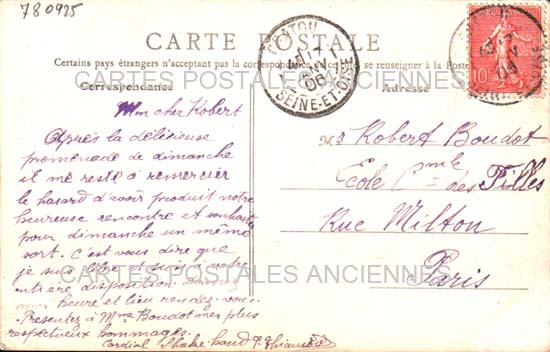 780925
CARTE POSTALE
Certains pays étrangers n'acceptant pas la correspondance de ce côté, se renseigner à la Poste
CARTES POSTALES ANCIENNES
Correspondance
Adresse
CHATOU
SEINE-ET-OISE
10
Mon cher Robert
Après la délicieuse
promenade de dimanche
il me reste à remercier
le hasard d'avoir produit notre
heureuse rencontre et souhaite
pour dimanche un même
sort. C'est vous dire que
je suis libre et suis à votre
entière disposition. Donnez
moi heure et lieu rendez-vous.
Présentez à Mme Boudot mes plus
respectueux hommages.
Cordial Shake hand
Mr Robert Boudot
Ecole Cmle des Filles
Rue Milton
Paris
CARTES POSTALES ANCIENNES